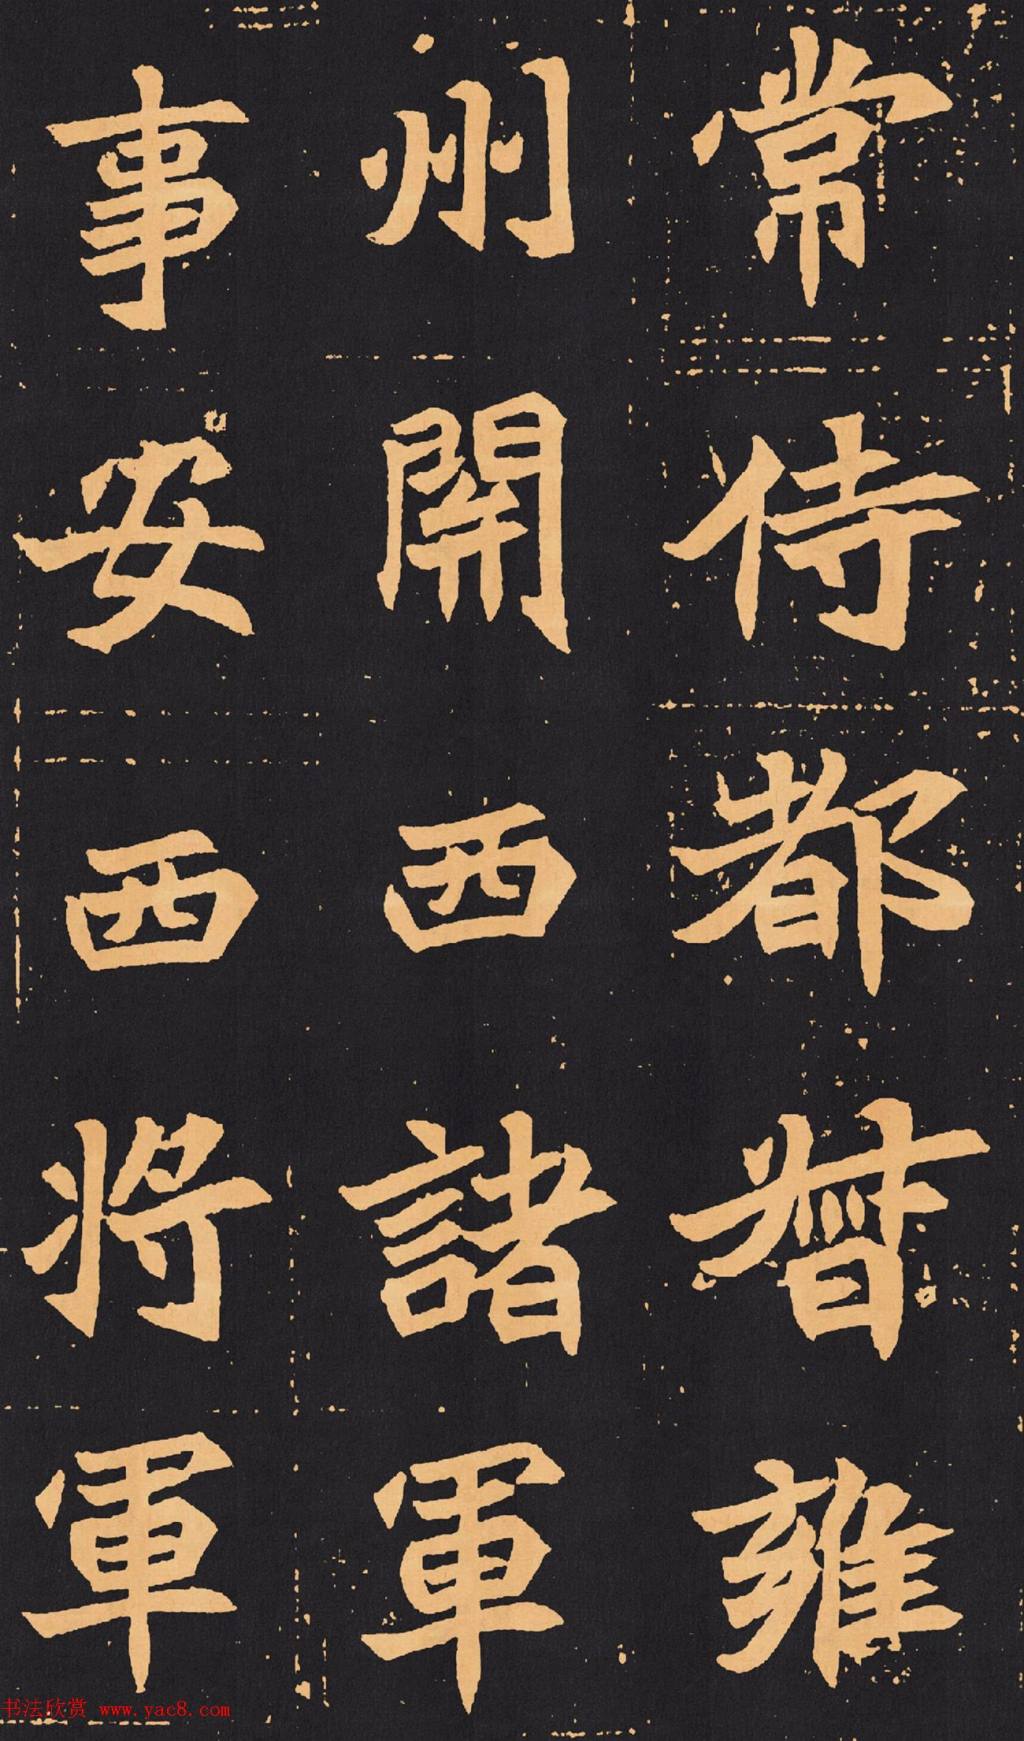 常侍都督雍
州關西諸軍
事安西將軍
书法欣赏 www.yac8.com